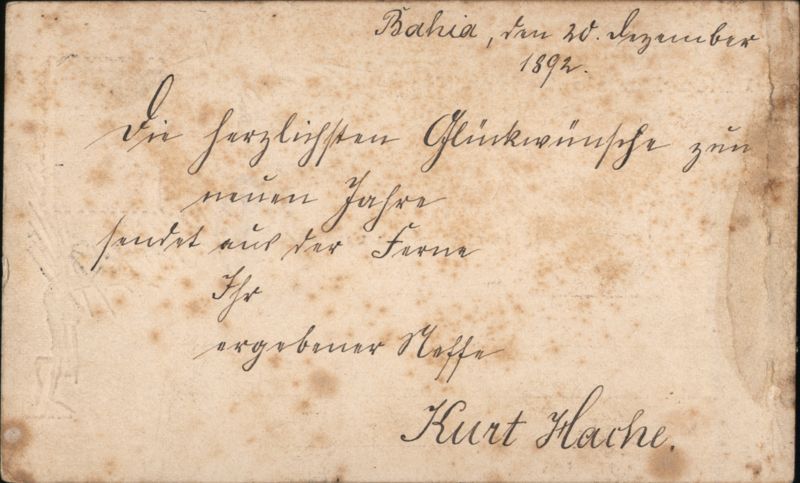 Bahia, den 20. Dezember
1892.
Die herzlichsten Glückwünsche zum
neuen Jahre
sendet aus der Ferne
Ihr
ergebener Neffe
Kurt Hache.